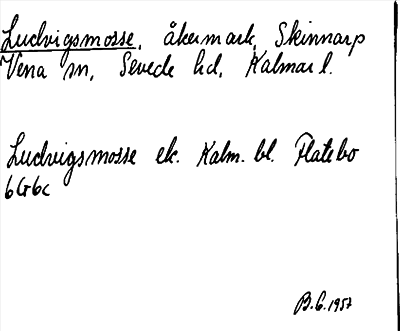 Ludvigsmosse, åkermark, Skinnarp
Vena sn, Sevede hd, Kalmar l.
Ludvigsmosse ek. Kalm. bl. Flatebo
6G6c
B.G. 1957